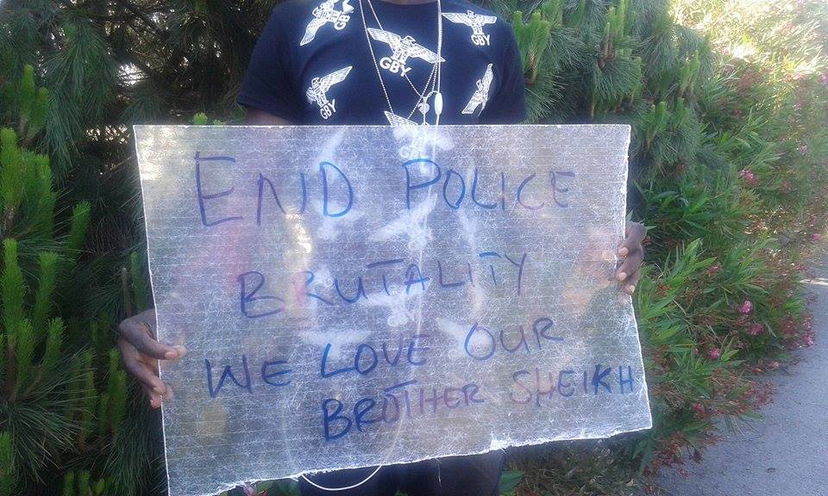 GBY
GBY
GBY
GBY
END POLICE
BRUTALITY
WE LOVE OUR
BROTHER SHEIKH